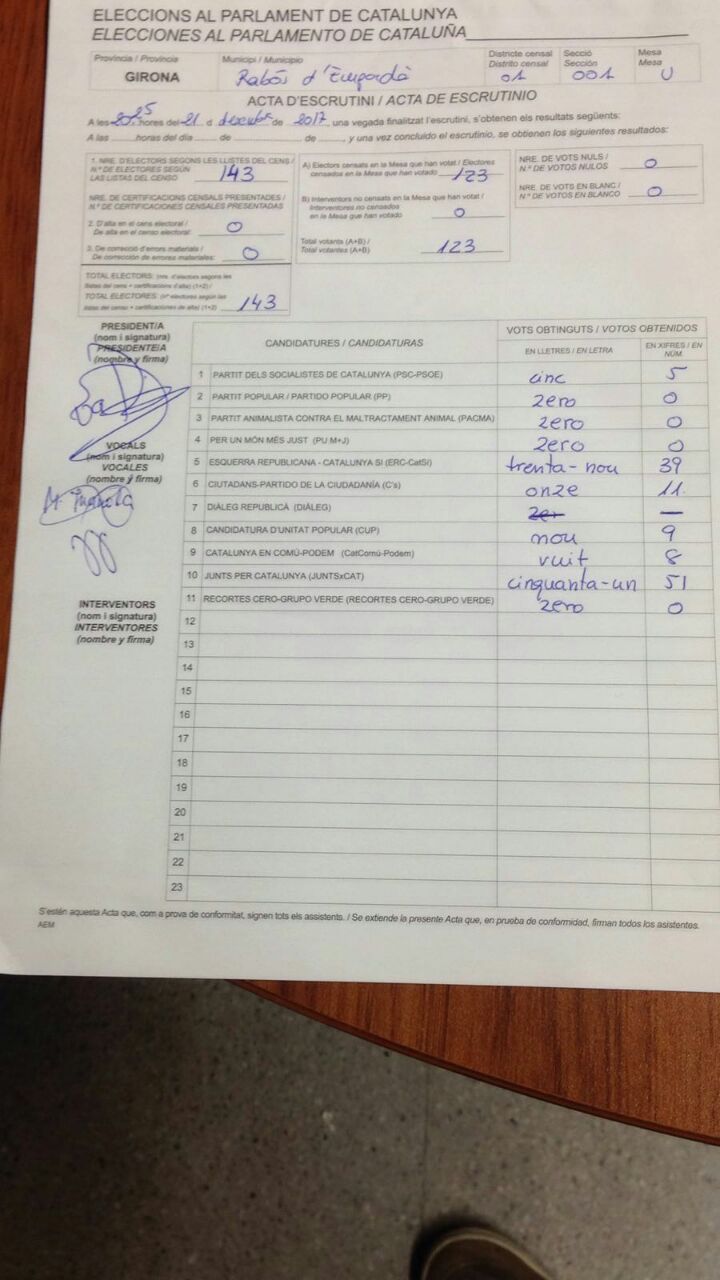 ELECCIONS AL PARLAMENT DE CATALUNYA
ELECCIONES AL PARLAMENTO DE CATALUÑA
Província / Provincia Municipi / Municipio Districte censal Secció Mesa
Distrito censal Sección Mesa
GIRONA Rabós d'Empordà 01 001 U
ACTA D'ESCRUTINI / ACTA DE ESCRUTINIO
A les 20:25 hores del 21 d desembre de 2017 una vegada finalitzat l'escrutini, s'obtenen els resultats següents:
A las horas del día de de , y una vez concluido el escrutinio, se obtienen los siguientes resultados:
1. NRE. D'ELECTORS SEGONS LES LLISTES DEL CENS /
N.º DE ELECTORES SEGÚN
LAS LISTAS DEL CENSO 143
NRE. DE CERTIFICACIONS CENSALS PRESENTADES /
N.º DE CERTIFICACIONES CENSALES PRESENTADAS
2. D'alta en el cens electoral /
De alta en el censo electoral: 0
3. De correcció d'errors materials /
De corrección de errores materiales: 0
TOTAL ELECTORS: (nre. d'electors segons les
llistes del cens + certificacions d'alta) (1+2) /
TOTAL ELECTORES: (nº electores según las
listas del censo + certificaciones de alta) (1+2) 143
A) Electors censats en la Mesa que han votat / Electores
censados en la Mesa que han votado 123
B) Interventors no censats en la Mesa que han votat /
Interventores no censados
en la Mesa que han votado 0
Total votants (A+B) /
Total votantes (A+B) 123
NRE. DE VOTS NULS /
N.º DE VOTOS NULOS 0
NRE. DE VOTS EN BLANC /
N.º DE VOTOS EN BLANCO 0
PRESIDENT/A
(nom i signatura)
PRESIDENTE/A
(nombre y firma)
VOCALS
(nom i signatura)
VOCALES
(nombre y firma)
INTERVENTORS
(nom i signatura)
INTERVENTORES
(nombre y firma)
CANDIDATURES / CANDIDATURAS VOTS OBTINGUTS / VOTOS OBTENIDOS
EN LLETRES / EN LETRA EN XIFRES / EN
NÚM.
1 PARTIT DELS SOCIALISTES DE CATALUNYA (PSC-PSOE) cinc 5
2 PARTIT POPULAR / PARTIDO POPULAR (PP) zero 0
3 PARTIT ANIMALISTA CONTRA EL MALTRACTAMENT ANIMAL (PACMA) zero 0
4 PER UN MÓN MÉS JUST (PU M+J) zero 0
5 ESQUERRA REPUBLICANA - CATALUNYA SI (ERC-CatSí) trenta-nou 39
6 CIUTADANS-PARTIDO DE LA CIUDADANÍA (C's) onze 11
7 DIÀLEG REPUBLICÀ (DIÀLEG) —
8 CANDIDATURA D'UNITAT POPULAR (CUP) nou 9
9 CATALUNYA EN COMÚ-PODEM (CatComú-Podem) vuit 8
10 JUNTS PER CATALUNYA (JUNTSxCAT) cinquanta-un 51
11 RECORTES CERO-GRUPO VERDE (RECORTES CERO-GRUPO VERDE) zero 0
12
13
14
15
16
17
18
19
20
21
22
23
S'estén aquesta Acta que, com a prova de conformitat, signen tots els assistents. / Se extiende la presente Acta que, en prueba de conformidad, firman todos los asistentes.
AEM